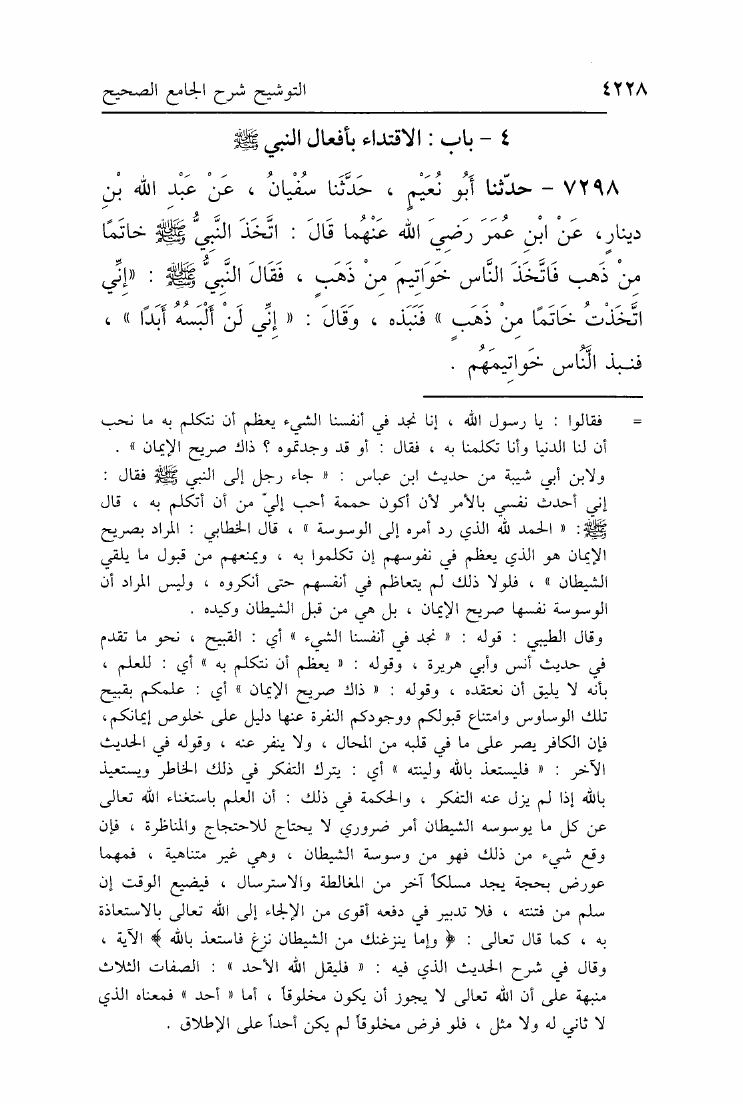 ٤٢٢٨ التوشيح شرح الجامع الصحيح
٤ - باب : الاقتداء بأفعال النبي ﷺ
٧٢٩٨ - حدّثنا أَبُو نُعَيْمٍ ، حَدَّثَنا سُفْيانُ ، عَنْ عَبْدِ الله بْنِ
دينارٍ، عَنْ ابْنِ عُمَرَ رَضِيَ الله عَنْهُما قالَ : اتَّخَذَ النَّبِيُّ ﷺ خاتَمًا
مِنْ ذَهب فَاتَّخَذَ النَّاس خَوَاتِيمَ مِنْ ذَهَبٍ ، فَقَالَ النَّبِيُّ ﷺ : «إِنِّي
اتَّخَذْتُ خَاتَمًا مِنْ ذَهَبٍ » فَنَبَذه ، وَقَالَ : « إِنِّي لَنْ أَلْبَسُهُ أَبَدًا » ،
فنبذ النَّاس خَواتِيمَهُم .
= فقالوا : يا رسول الله ، إنا نجد في أنفسنا الشيء يعظم أن نتكلم به ما نحب
أن لنا الدنيا وأنا تكلمنا به ، فقال : أو قد وجدتموه ؟ ذاك صريح الإيمان » .
ولابن أبي شيبة من حديث ابن عباس : « جاء رجل إلى النبي ﷺ فقال :
إني أحدث نفسي بالأمر لأن أكون حممة أحب إليّ من أن أتكلم به ، قال
ﷺ: « الحمد لله الذي رد أمره إلى الوسوسة » ، قال الخطابي : المراد بصريح
الإيمان هو الذي يعظم في نفوسهم إن تكلموا به ، ويمنعهم من قبول ما يلقي
الشيطان » ، فلولا ذلك لم يتعاظم في أنفسهم حتى أنكروه ، وليس المراد أن
الوسوسة نفسها صريح الإيمان ، بل هي من قبل الشيطان وكيده .
وقال الطيبي : قوله : « نجد في أنفسنا الشيء » أي : القبيح ، نحو ما تقدم
في حديث أنس وأبي هريرة ، وقوله : « يعظم أن نتكلم به » أي : للعلم ،
بأنه لا يليق أن نعتقده ، وقوله : « ذاك صريح الإيمان » أي : علمكم بقبيح
تلك الوساوس وامتناع قبولكم ووجودكم النفرة عنها دليل على خلوص إيمانكم،
فإن الكافر يصر على ما في قلبه من المحال ، ولا ينفر عنه ، وقوله في الحديث
الآخر : « فليستعذ بالله ولينته » أي : يترك التفكر في ذلك الخاطر ويستعيذ
بالله إذا لم يزل عنه التفكر ، والحكمة في ذلك : أن العلم باستغناء الله تعالى
عن كل ما يوسوسه الشيطان أمر ضروري لا يحتاج للاحتجاج والمناظرة ، فإن
وقع شيء من ذلك فهو من وسوسة الشيطان ، وهي غير متناهية ، فمهما
عورض بحجة يجد مسلكاً آخر من المغالطة والاسترسال ، فيضيع الوقت إن
سلم من فتنته ، فلا تدبير في دفعه أقوى من الإلجاء إلى الله تعالى بالاستعاذة
به ، كما قال تعالى : ﴿ وإما ينزغنك من الشيطان نزغ فاستعذ بالله ﴾ الآية ،
وقال في شرح الحديث الذي فيه : « فليقل الله الأحد » : الصفات الثلاث
منبهة على أن الله تعالى لا يجوز أن يكون مخلوقاً ، أما « أحد » فمعناه الذي
لا ثاني له ولا مثل ، فلو فرض مخلوقاً لم يكن أحداً على الإطلاق .